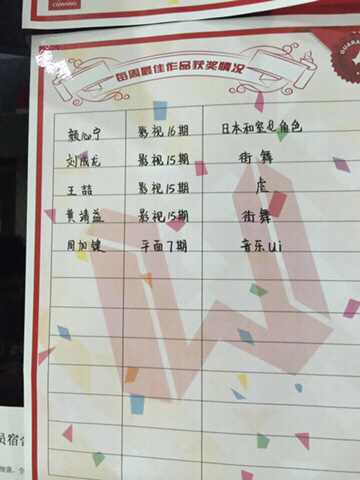 CGWANG
每周最佳作品获奖情况
颜心宁 影视16期 日本和室&角色
刘成龙 影视15期 街舞
王喆 影视15期 虎
黄靖益 影视15期 街舞
周加键 平面7期 音乐Ui
员宿舍